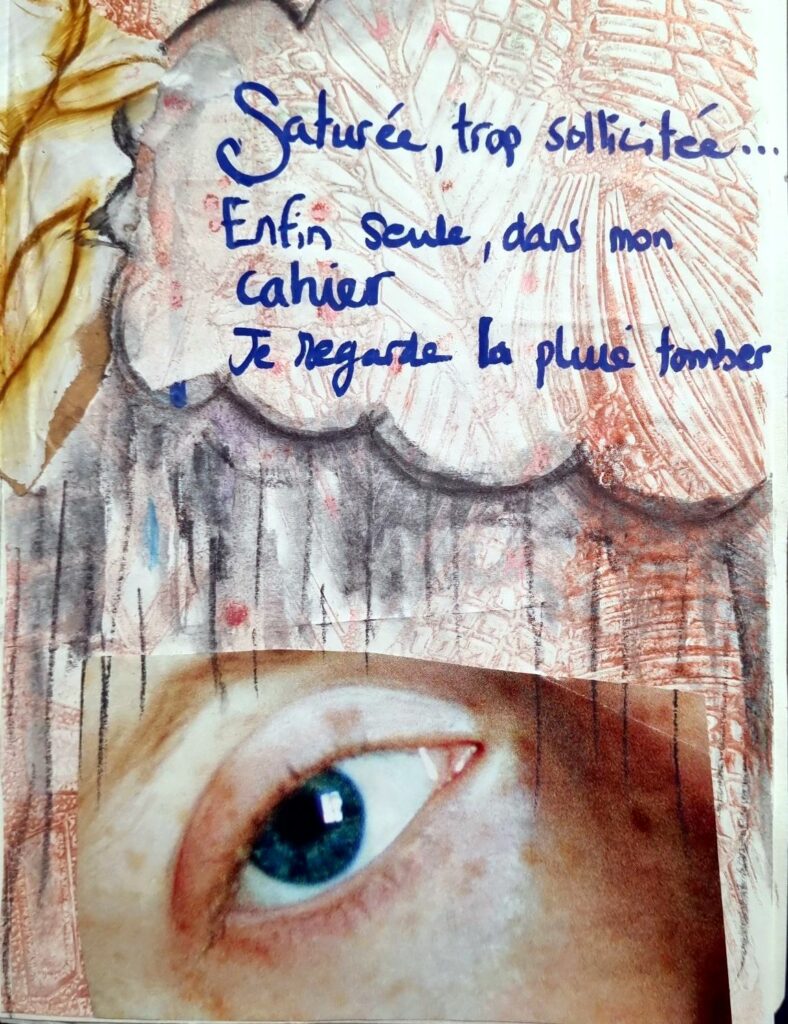 Saturée, trop sollicitée...
Enfin seule, dans mon
cahier
Je regarde la pluie tomber